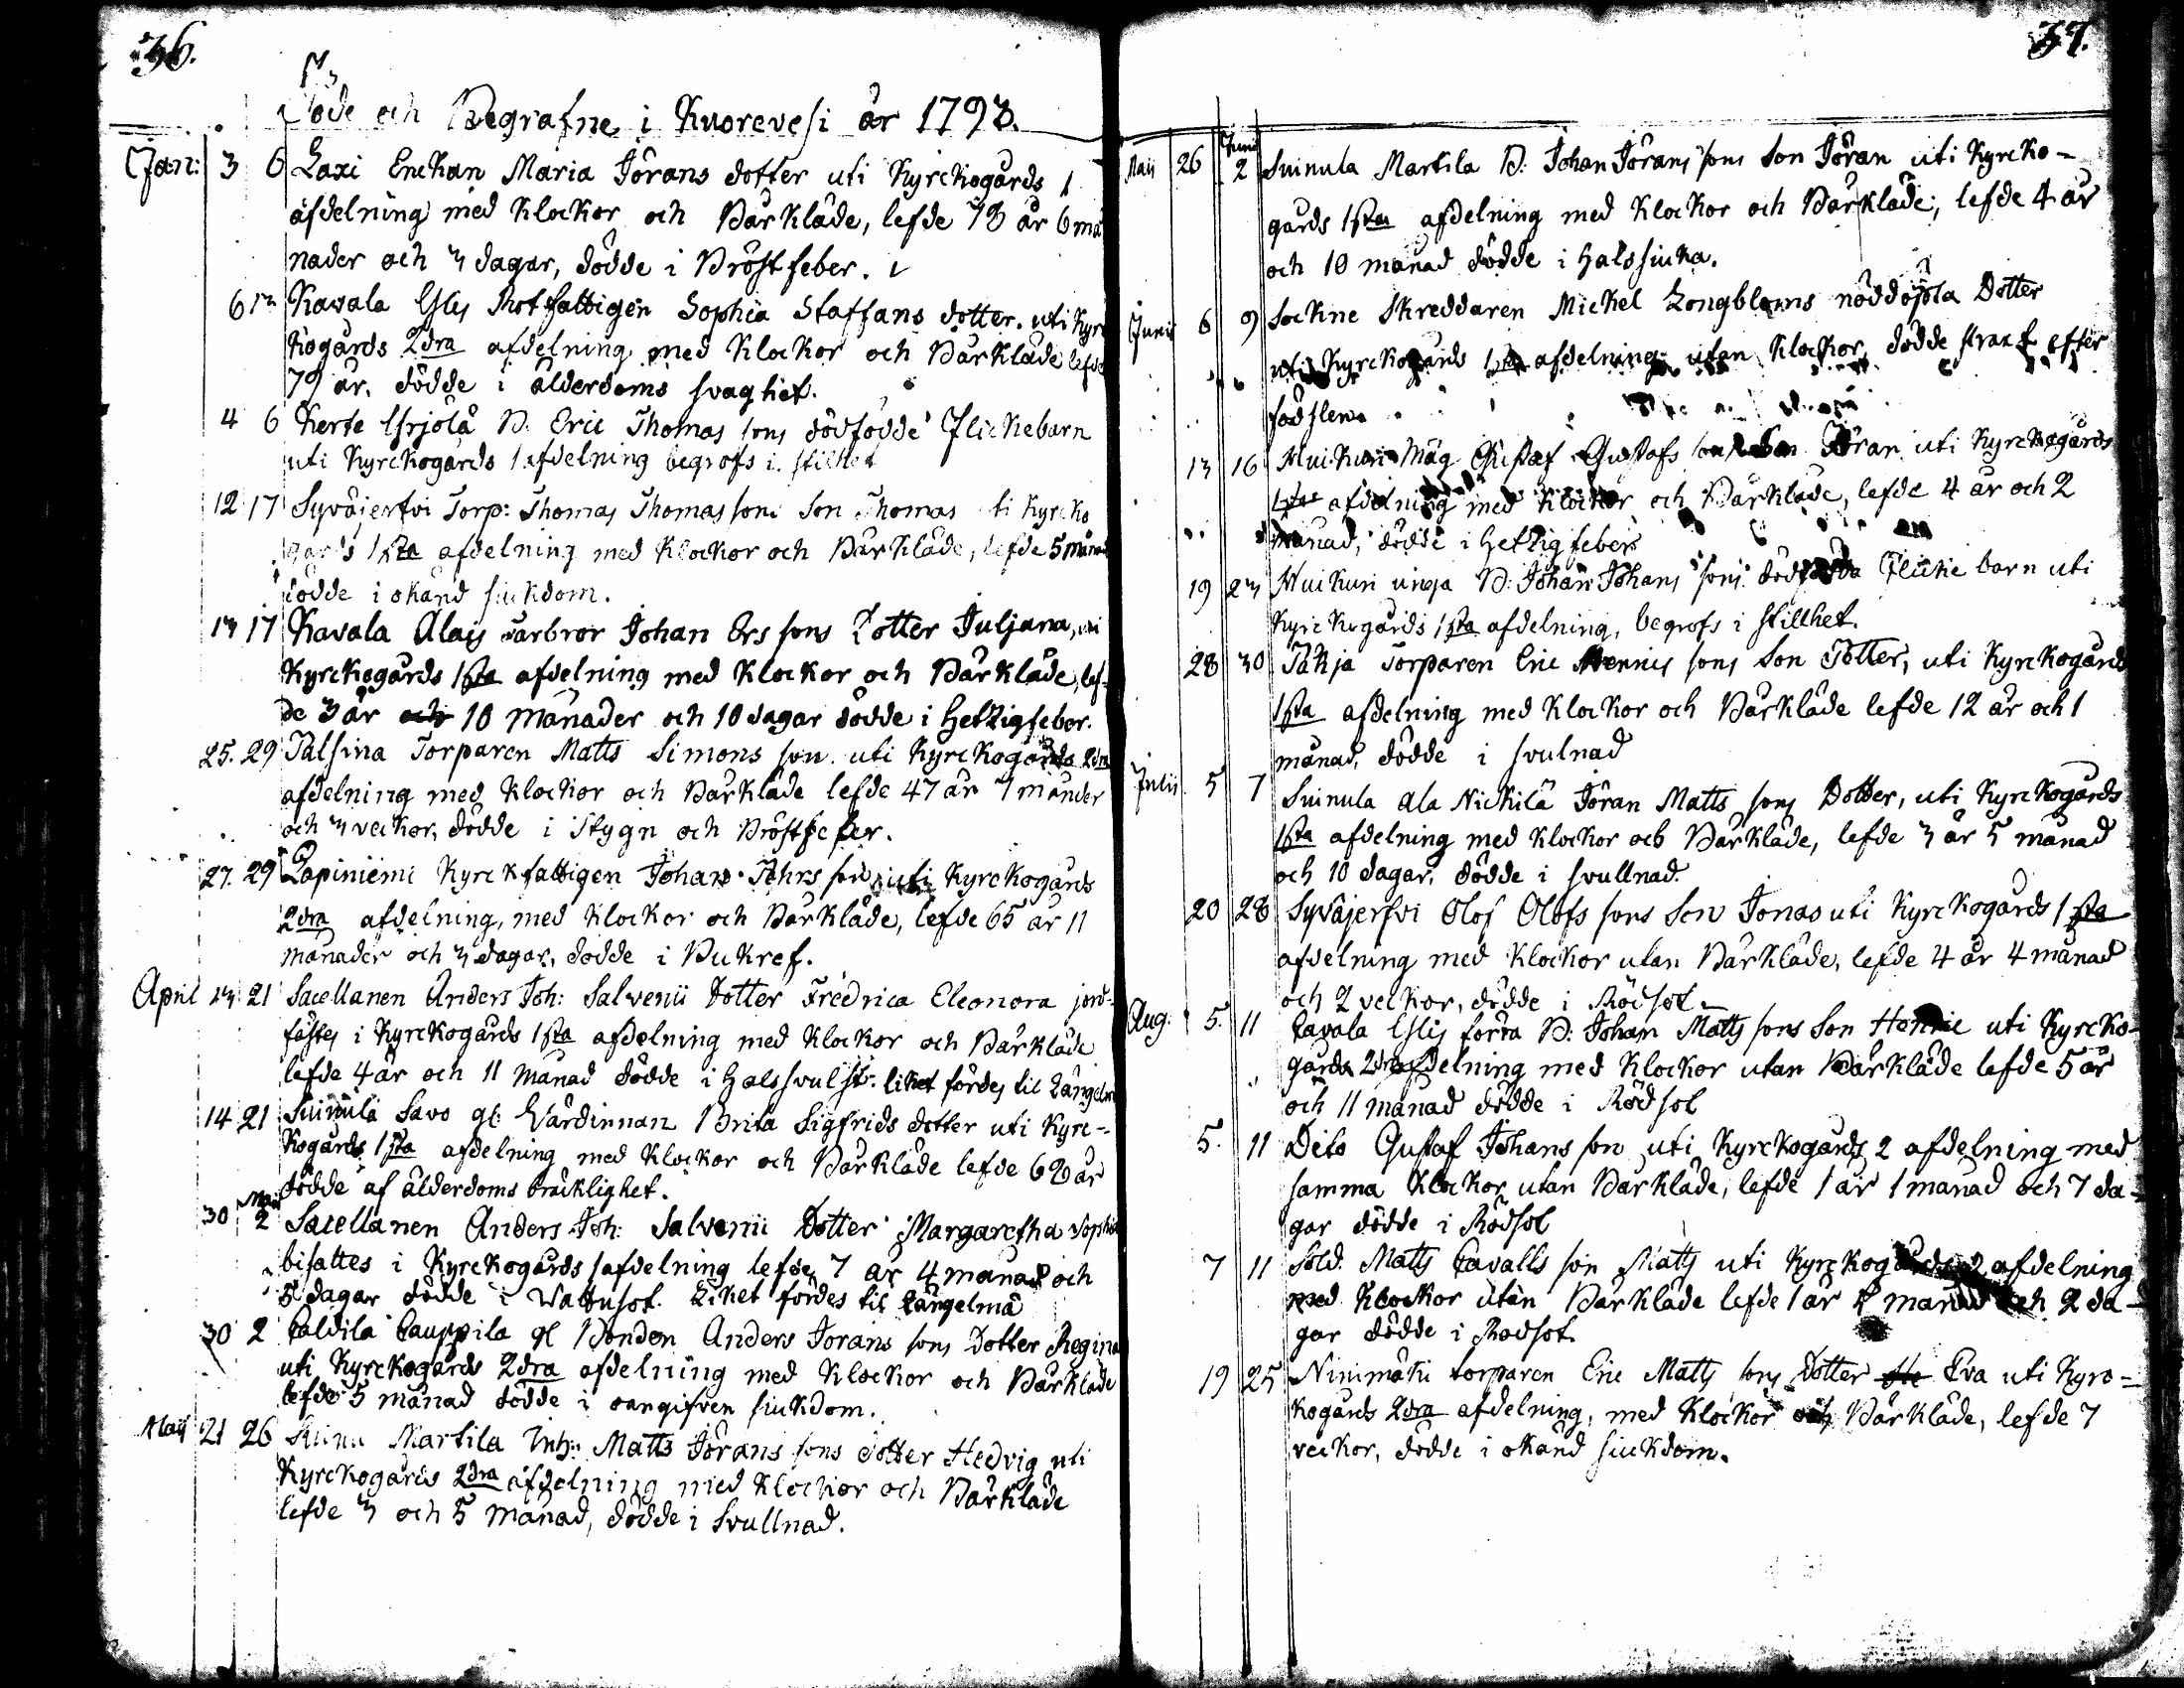 36.
Döde och Begrafne i Kuorevesi år 1793.
Jan: 3 6 Laxi Enckan Maria Jörans dotter uti Kyrckogårds 1
afdelning med Klockor och Bårkläde, lefde 73 år 6 må
nader och 3 dagar, dödde i Bröstfeber.
6 13 Kavala Eslis Rotfattigen Sophia Staffans dotter. uti Kyrc
kogårds 2dra afdelning med Klockor och Bårkläde lefde
79 år. dödde i ålderdoms svaghet.
4 6 Kerte Yrjölä B. Eric Thomas sons dödfödde Flickebarn
uti Kyrckogårds 1 afdelning begrofs i stilhet
12 17 Syväjerfvi Torp: Thomas Thomas sons Son Thomas ti Kyrcko
gårds 1sta afdelning med Klockor och Bårkläde, lefde 5 månad
dödde i okänd siuckdom.
13 17 Kavala Alais Farbror Johan Ers sons Dotter Juljana, uti
Kyrckogårds 1sta afdelning med Klockor och Bårkläde, lef-
de 3 år och 10 Månader och 10 dagar dödde i Hetzigfeber.
25. 29 Pälsinä Torparen Matts Simons son uti Kyrckogårds 2dra
afdelning med Klockor och Bårkläde lefde 47 år 7 månder
och 3 veckor, dödde i Stygn och Bröstfeber.
27. 29 Lapiniemi Kyrckfattigen Johan Jöhrs son uti Kyrckogårds
2dra afdelning, med Klockor och Bårkläde, lefde 65 år 11
månader och 3 dagar, dödde i Bukref.
April 13 21 Sacellanen Anders Joh: Salvenii Dotter Fredrica Eleonora jord-
fästes i Kyrckogårds 1sta afdelning med Klockor och Bårkläde
lefde 4 år och 11 Månad dödde i Halssvulst. liket fördes til Längelmä
14 21 Suinula Savo gl: Värdinnan Brita Sigfrids dotter uti Kyrc-
kogårds 1sta afdelning med Klockor och Bårkläde lefde 60 år
dödde af ålderdoms bräcklighet.
30 Maii 2 Sacellanen Anders Joh: Salvenii Dotter Margaretha Sophia
bisattes i Kyrckogårds 1 afdelning lefde 7 år 4 månad och
5 dagar dödde i Wattusot. Liket fördes til Längelmä
30 2 Paldila Cauppila gl Bonden Anders Jörans sons Dotter Regina
uti Kyrckogårds 2dra afdelning med Klockor och Bårkläde
lefde 5 månad dödde i oangifven siuckdom.
Maii 21 26 Suinu Martila Inh: Matts Jörans sons dotter Hedvig uti
Kyrckogårds 2dra afdelning med Klockor och Bårkläde
lefde 3 och 5 Månad, dödde i Svullnad.
37.
Maii 26 Junii 2 Suinula Martila B: Johan Jörans sons Son Jöran uti Kyrcko-
gårds 1sta afdelning med Klockor och Bårkläde, lefde 4 år
och 10 månad dödde i Halssiuka.
Junii 6 9 Sockne Skreddaren Mickel Longbloms nöddöpta Dotter
uti Kyrckogårds 1sta afdelning utan Klockor, dödde strax efter
födslen.
13 16 Muikuri Måg Gustaf Gustafs son Son Jöran uti Kyrckogårds
1sta afdelning med Klockor och Bårkläde, lefde 4 år och 2
månad, dödde i Hetzigfeber
19 23 Muikuri unga B: Johan Johans sons dödfödda Flicke barn uti
Kyrckogårds 1sta afdelning, begrofs i stillhet.
28 30 Päkja Torparen Eric Hennics sons Son Petter, uti Kyrckogårds
1sta afdelning med Klockor och Bårkläde lefde 12 år och 1
månad, dödde i svulnad
Julii 5 7 Suinula Ala Nickilä Jöran Matts sons Dotter, uti Kyrckogårds
1sta afdelning med Klockor och Bårkläde, lefde 3 år 5 månad
och 10 dagar, dödde i svullnad.
20 28 Syväjerfvi Olof Olofs sons Son Jonas uti Kyrckogårds 1sta
afdelning med Klockor utan Bårkläde, lefde 4 år 4 månad
och 2 veckor, dödde i Rödsot
Aug: 5. 11 Cavala Eslis förra B: Johan Matts sons Son Henric uti Kyrcko-
gårds 2dra afdelning med Klockor utan Bårkläde lefde 5 år
och 11 månad dödde i Rödsot
5. 11 Dito Gustaf Johans son uti Kyrckogårds 2 afdelning med
samma Klockor utan Bårkläde, lefde 1 år 1 månad och 7 da-
gar dödde i Rödsot
7 11 Sold. Matts Cavalls son Matts uti Kyrckogårds 2 afdelning
med Klockor utan Bårkläde lefde 1 år månad och 2 da-
gar dödde i Rödsot.
19 25 Ninimäki torparen Eric Matts sons Dotter Eva uti Kyrc-
kogårds 2dra afdelning, med Klockor och Bårkläde, lefde 7
veckor, dödde i okänd siuckdom.